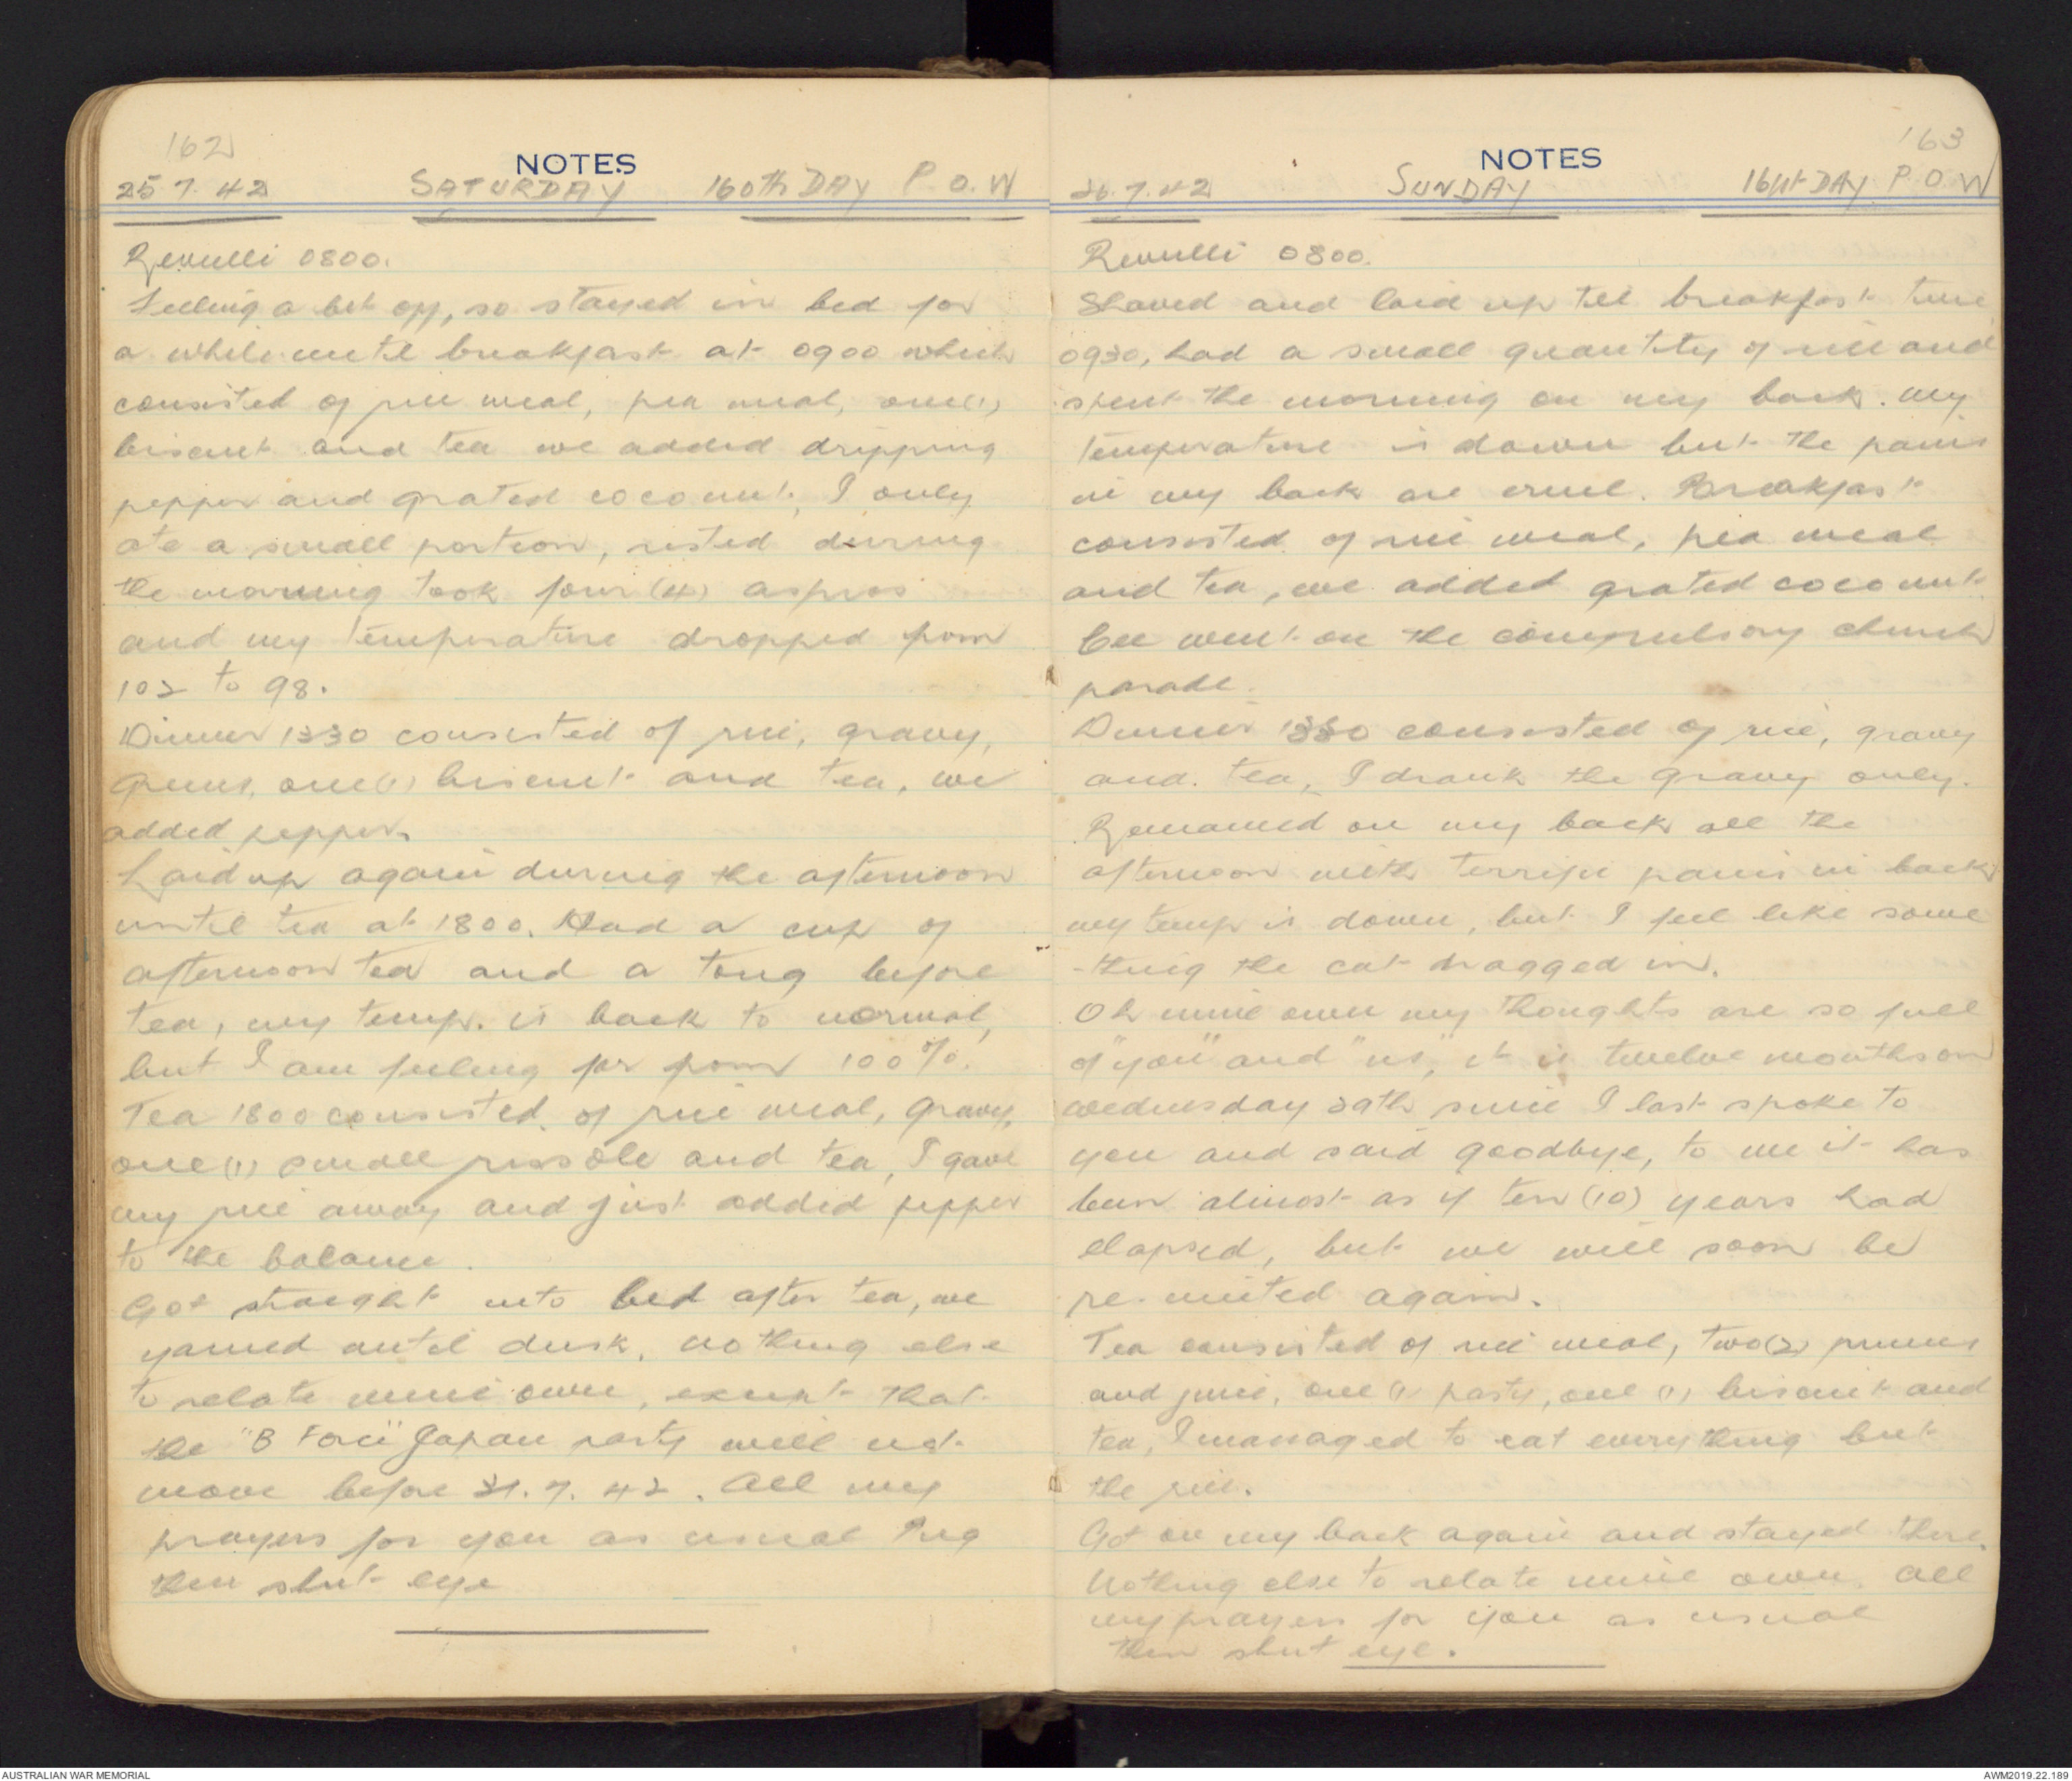 162
NOTES
25 7. 42 SATURDAY 160th DAY P.O.W
Revulli 0800.
Feeling a bit off, so stayed in bed for
a while until breakfast at 0900 which
consisted of rice meal, pea meal, one (1)
biscuit and tea we added dripping
pepper and grated coconut, I only
ate a small portion, rested during
the morning took four (4) aspros
and my temperature dropped from
102 to 98.
Dinner 1330 consisted of rice, gravy,
greens, one (1) biscuit and tea, we
added pepper.
Laid up again during the afternoon
until tea at 1800. Had a cup of
afternoon tea and a tong before
tea, my temp. is back to normal,
but I am feeling far from 100%.
Tea 1800 consisted of rice meal, gravy,
one (1) small rissole and tea, I gave
my rice away and just added pepper
to the balance.
Got straight into bed after tea, we
yarned until dusk, nothing else
to relate mine own, except that
the "B Force" Japan party will not
move before 31. 7. 42. All my
prayers for you as usual
then shut eye
163
NOTES
26. 7. 42 SUNDAY 161st DAY P.O.W
Revulli 0800.
Shaved and laid up till breakfast time
0930, had a small quantity of rice and
spent the morning on my back. My
temperature is down but the pains
in my back are cruel. Breakfast
consisted of rice meal, pea meal
and tea, we added grated coconut.
Cec went on the compulsory church
parade.
Dinner 1330 consisted of rice, gravy
and. tea, I drank the gravy only.
Remained on my back all the
afternoon with terrific pains in back
my temp is down, but I feel like some
-thing the cat dragged in.
Oh mine own my thoughts are so full
of "you" and "us", it is twelve months on
wednesday 29th since I last spoke to
you and said goodbye, to me it has
been almost as if ten (10) years had
elapsed, but we will soon be
re-united again.
Tea consisted of rice meal, two (2) prunes
and juice, one (1) pasty, one (1) biscuit and
tea, I managed to eat everything but
the rice.
Got on my back again and stayed there.
Nothing else to relate mine own. All
my prayers for you as usual
then shut eye.
AUSTRALIAN WAR MEMORIAL
AWM2019.22.189